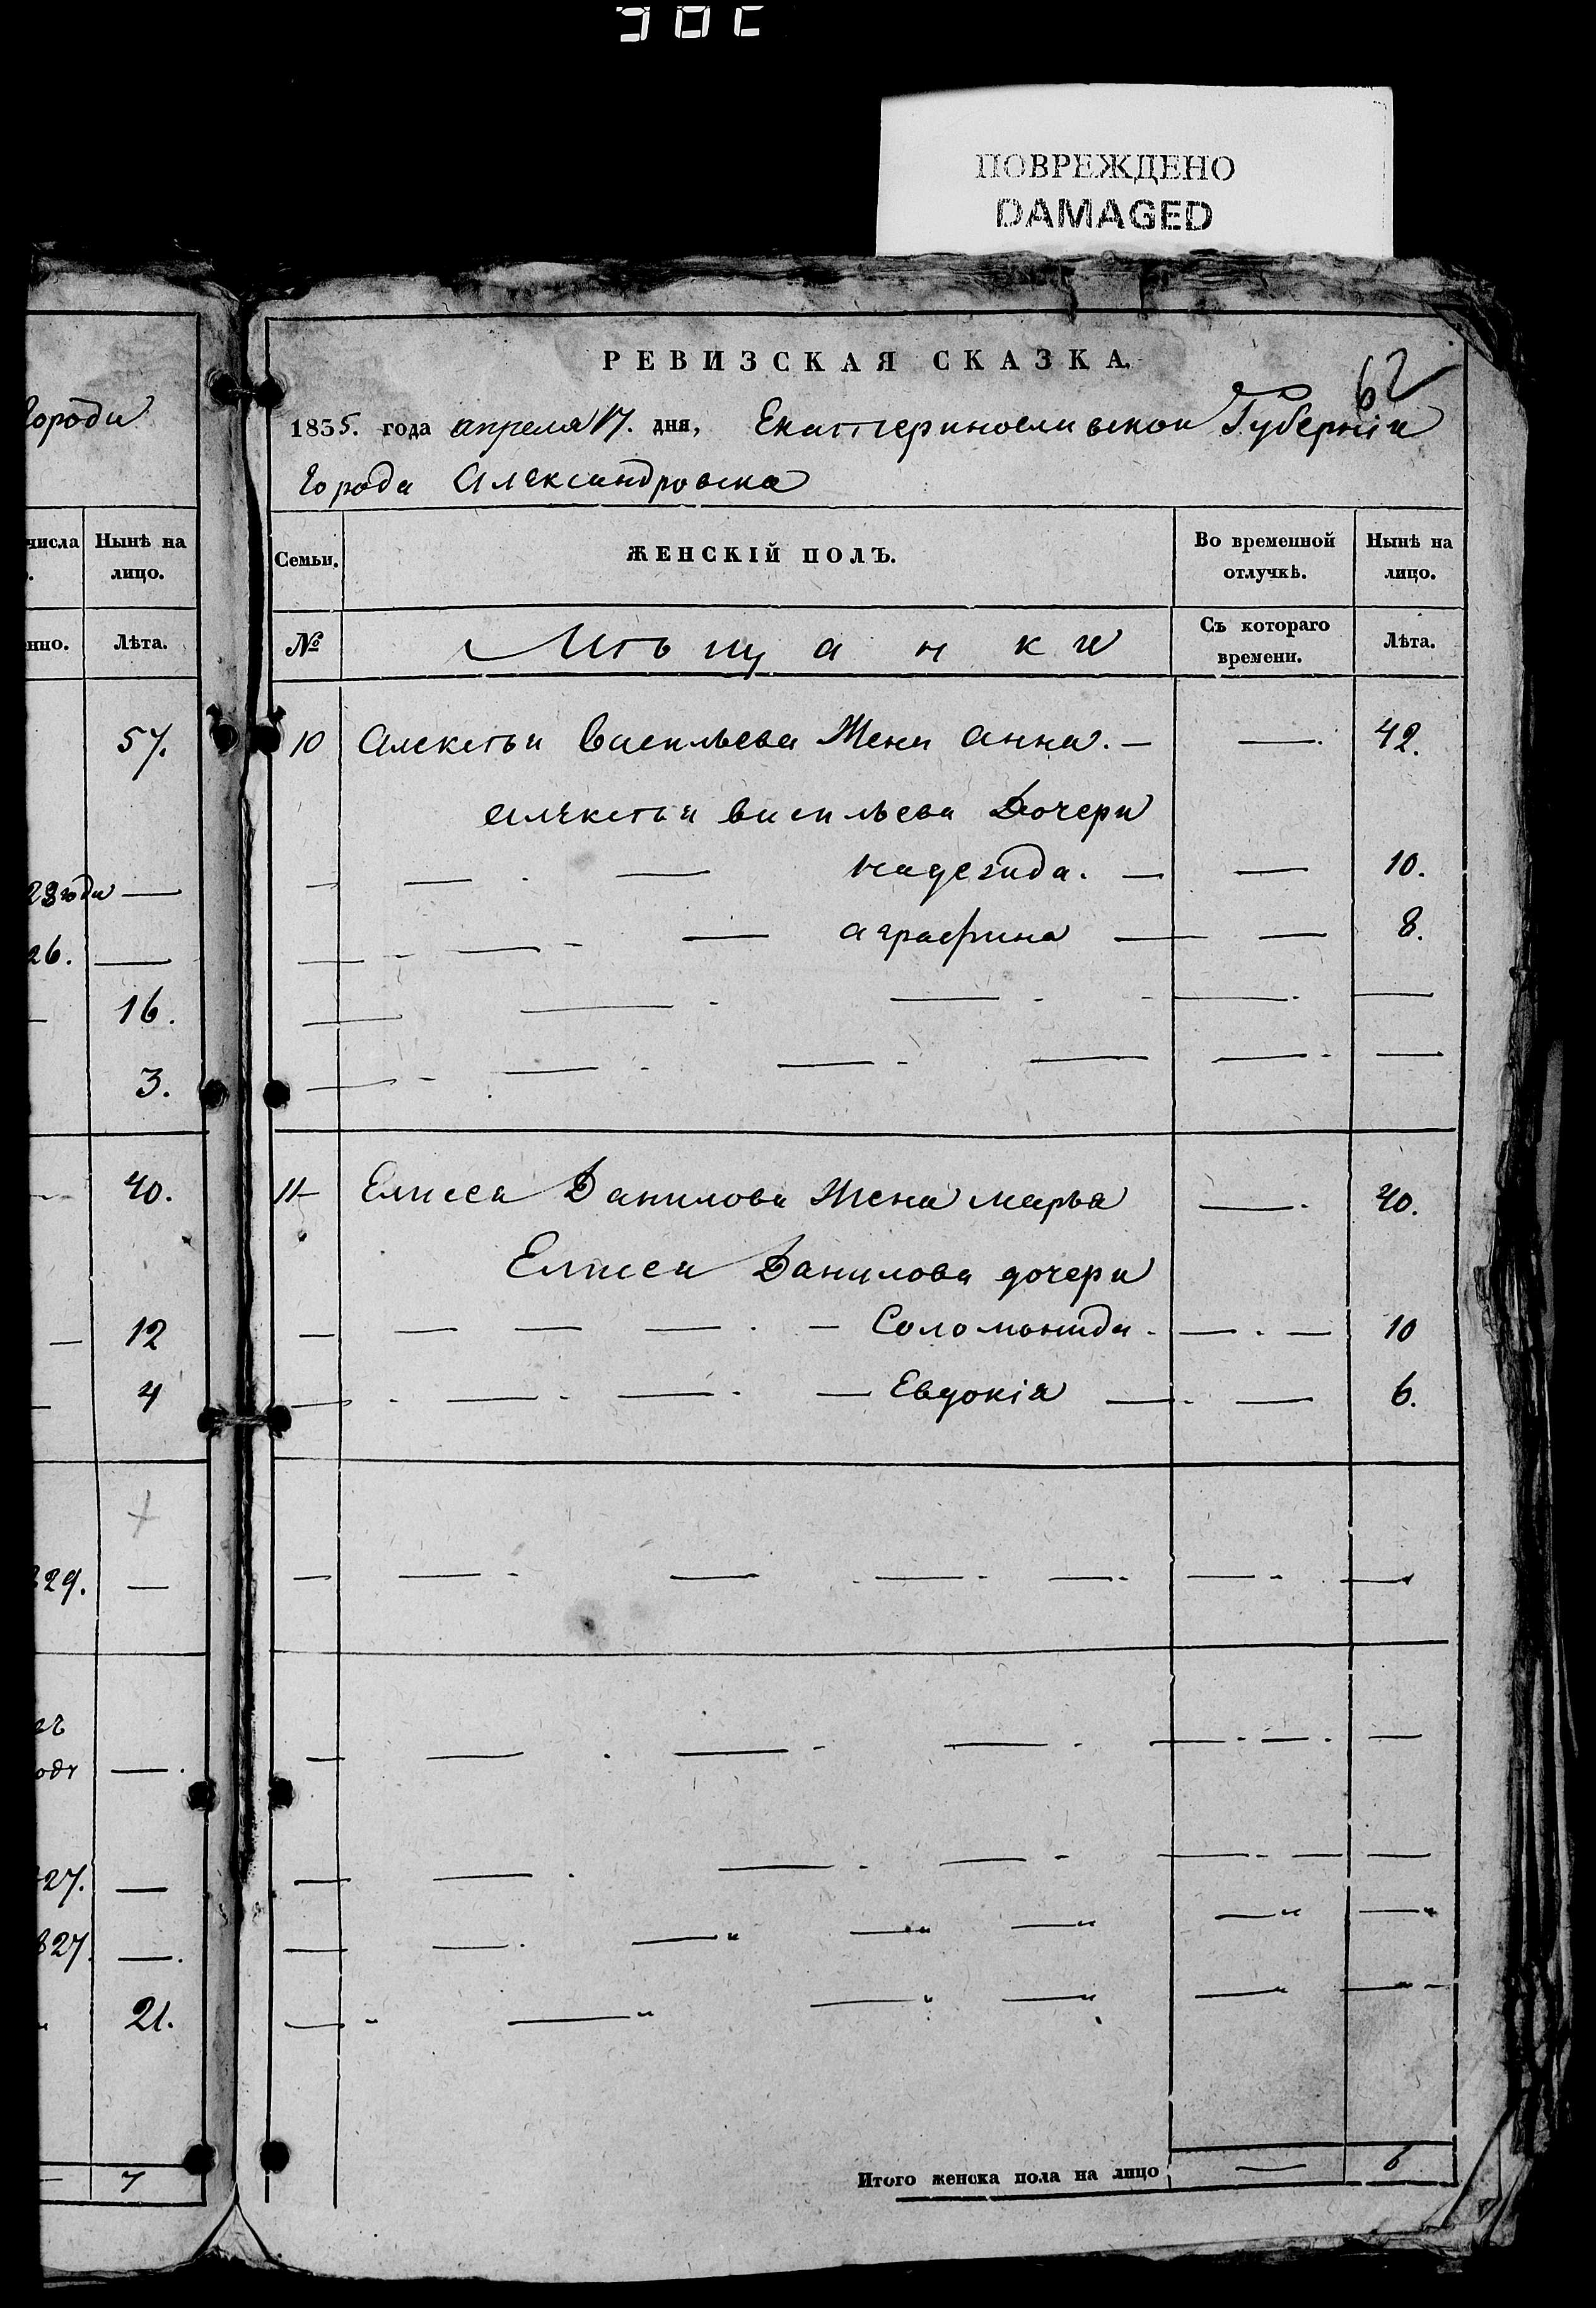 ПОВРЕЖДЕНО
DAMAGED
РЕВИЗСКАЯ СКАЗКА.
62
1835. года апреля 17. дня, Екатеринославской Губерніи
Города Александровска
Города
числа
Нынѣ на лицо.
нно.
Лѣта.
57.
23 года —
26. —
— 16.
3.
40.
— 12
— 4
829. —
27. —
827. —
21.
— 7
Семьи.
ЖЕНСКІЙ ПОЛЪ.
Во временной отлучкѣ.
Нынѣ на лицо.
№
Мѣщанки
Съ котораго времени.
Лѣта.
10 Алексѣя Васильева Жена Анна. — — 42.
Алексѣя Васильева Дочери
— — — Надежда. — — 10.
— — — Аграфина — — 8.
11 Елисея Данилова Жена Марья — 40.
Елисея Данилова дочери
— — — — — Соломонида. — — 10
— — — — Евдокія — — 6.
Итого женска пола на лицо — 6